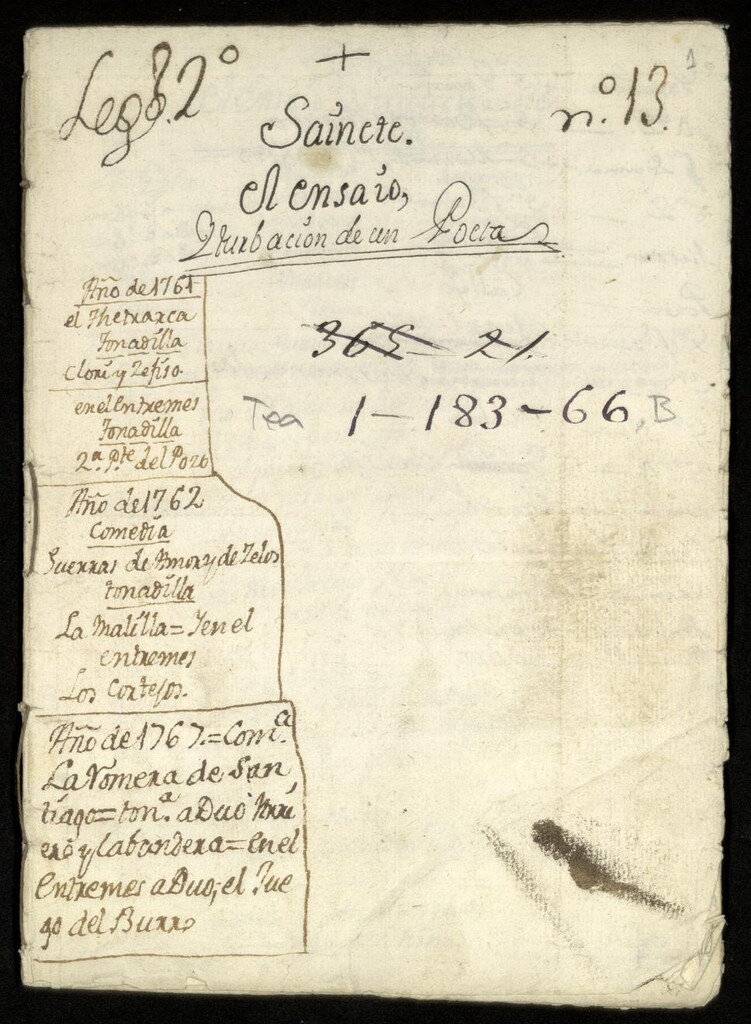 +
Legº 2º
nº. 13.
1
Sainete.
el ensaio,
Yturbacion de un Poeta
365 - 21.
Tea 1-183-66, B
Año de 1761
el Thetrarca
Tonadilla
Clori y Zefiro.
en el Entremes
Tonadilla
2ª. Pte del Pozo
Año de 1762
Comedia
Guerras de Amor y de Zelos
tonadilla
La Malilla = Yen el
entremes
Los Cortejos.
Año de 1767. = Comª.
La Romera de San,
tiago = tonª. a Duo Arri
ero y labandera = en el
Entremes a Duo, el Jue
go del Burro